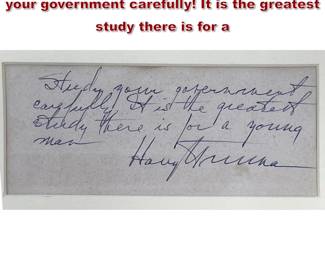 your government carefully! It is the greatest
study there is for a
Study your government
carefully! It is the greatest
study there is for a young
man
Harry Truman